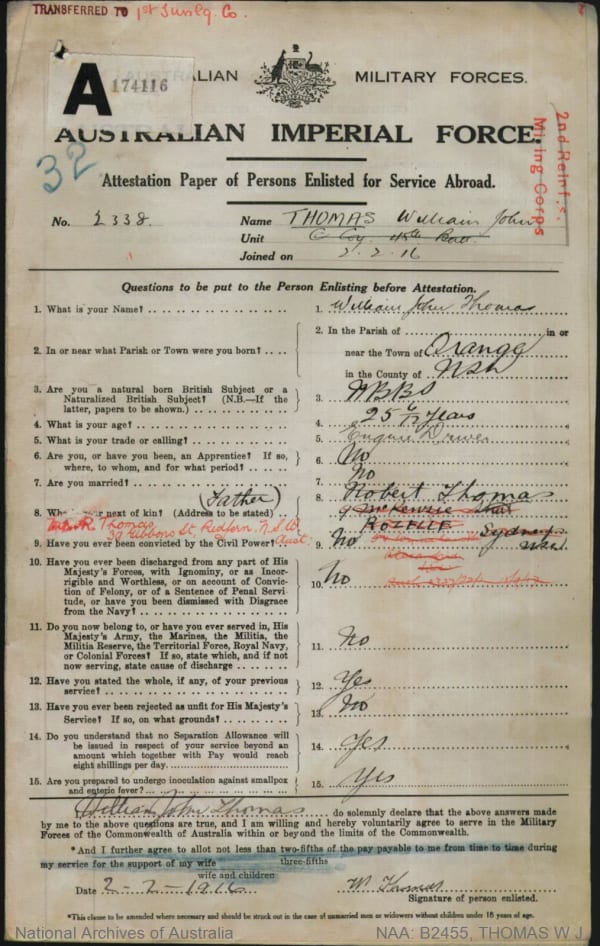 TRANSFERRED TO 1st Tunlg. Co.
A 174116
AUSTRALIAN MILITARY FORCES.
AUSTRALIAN IMPERIAL FORCE.
32
2nd Reinf.s.
Mining Corps
Attestation Paper of Persons Enlisted for Service Abroad.
No. 2338. Name THOMAS William John
Unit C Coy 45th Batt
Joined on 2.2.16
Questions to be put to the Person Enlisting before Attestation.
1. What is your Name? 1. William John Thomas
2. In or near what Parish or Town were you born? 2. In the Parish of in or
near the Town of Orange
in the County of NSW
3. Are you a natural born British Subject or a
Naturalized British Subject? (N.B.—If the
latter, papers to be shown.) 3. NBBS
4. What is your age? 4. 25 6/12 Years
5. What is your trade or calling? 5. Engine Driver
6. Are you, or have you been, an Apprentice? If so,
where, to whom, and for what period? 6. No
7. Are you married? 7. No
(Father)
8. Who is your next of kin? (Address to be stated) 8. Robert Thomas
9 McKenzie Street
ROZELLE Sydney
NSW
R. Thomas,
39 Gibbons St, Redfern, N.S.W.
Aust.
9. Have you ever been convicted by the Civil Power? 9. No
10. Have you ever been discharged from any part of His
Majesty's Forces, with Ignominy, or as Incor-
rigible and Worthless, or on account of Convic-
tion of Felony, or of a Sentence of Penal Servi-
tude, or have you been dismissed with Disgrace
from the Navy? 10. No
11. Do you now belong to, or have you ever served in, His
Majesty's Army, the Marines, the Militia, the
Militia Reserve, the Territorial Force, Royal Navy,
or Colonial Forces? If so, state which, and if not
now serving, state cause of discharge 11. No
12. Have you stated the whole, if any, of your previous
service? 12. Yes
13. Have you ever been rejected as unfit for His Majesty's
Service? If so, on what grounds? 13. No
14. Do you understand that no Separation Allowance will
be issued in respect of your service beyond an
amount which together with Pay would reach
eight shillings per day. 14. Yes
15. Are you prepared to undergo inoculation against smallpox
and enteric fever? 15. Yes
I William John Thomas do solemnly declare that the above answers made
by me to the above questions are true, and I am willing and hereby voluntarily agree to serve in the Military
Forces of the Commonwealth of Australia within or beyond the limits of the Commonwealth.
*And I further agree to allot not less than two-fifths of the pay payable to me from time to time during
three-fifths
my service for the support of my wife
wife and children
Date 2-2-1916 W Thomas
Signature of person enlisted.
*This clause to be amended where necessary and should be struck out in the case of unmarried men or widowers without children under 18 years of age.
National Archives of Australia NAA: B2455, THOMAS W J